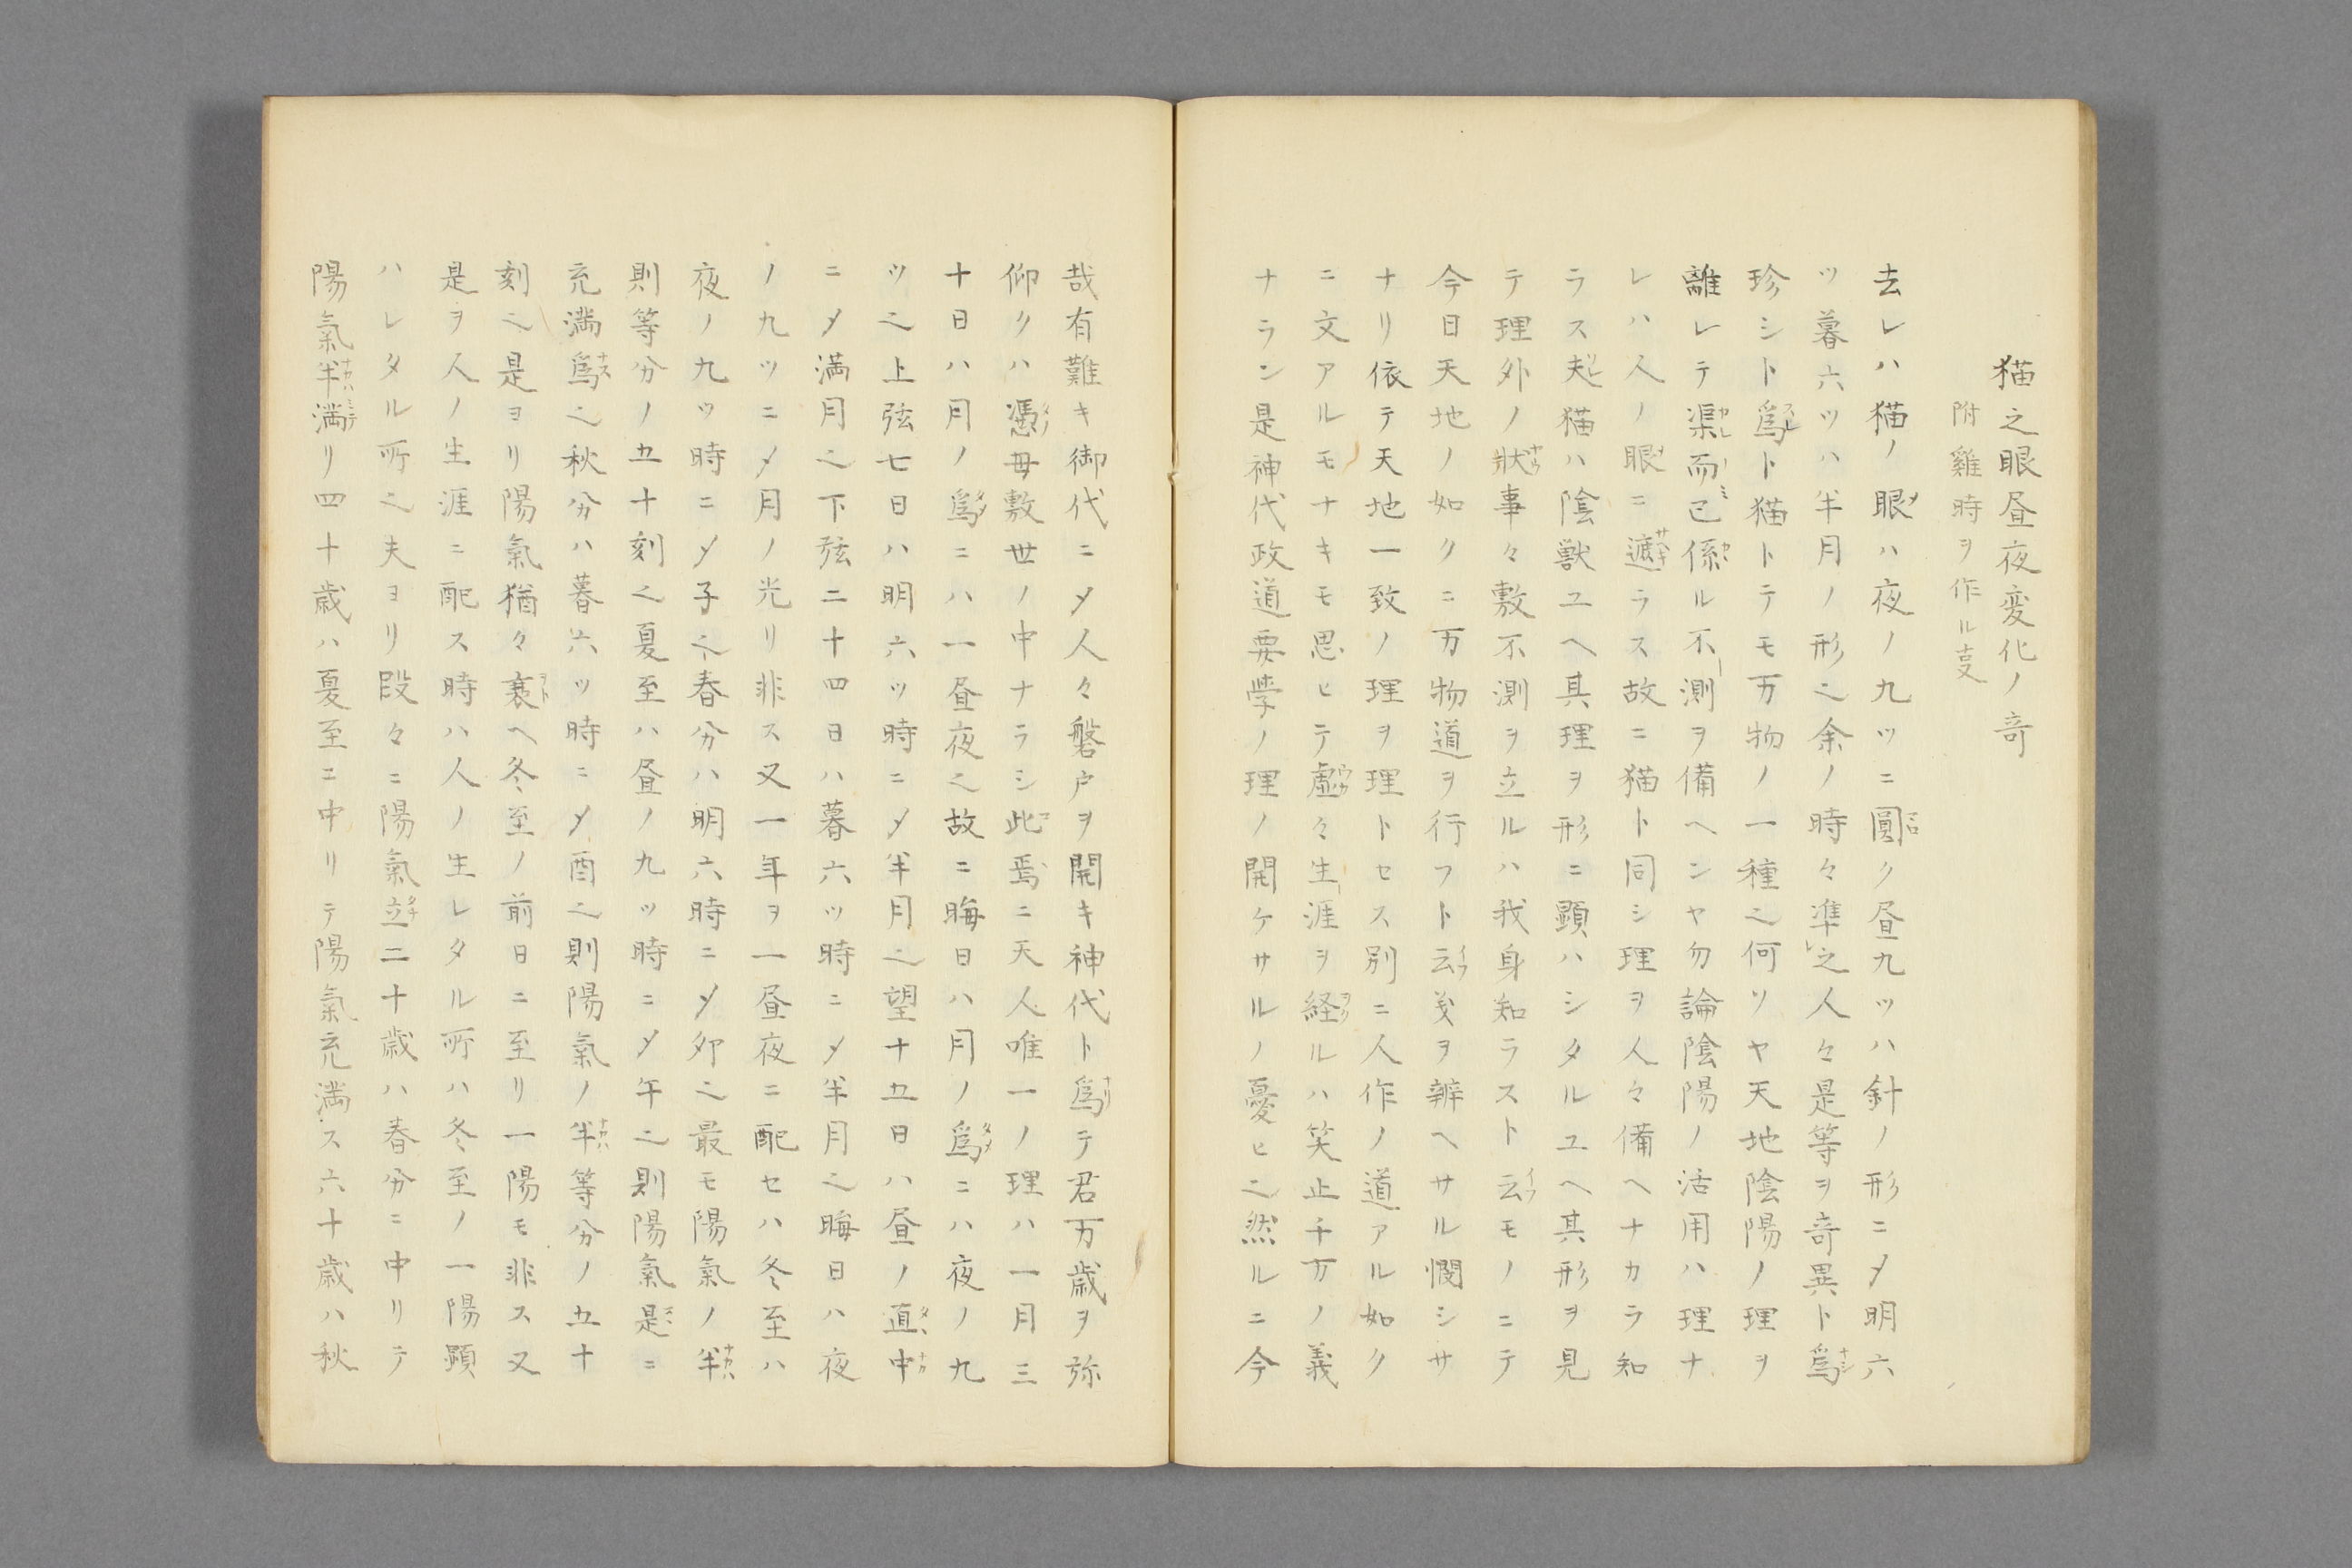 猫之眼昼夜変化ノ奇
附雞時ヲ作ル叓
去レハ猫ノ眼ハ夜ノ九ツニ圓ク昼九ツハ針ノ形ニ〆明六
ツ暮六ツハ半月ノ形之余ノ時々準之人々是等ヲ奇異ト爲
珍シト爲ト猫トテモ万物ノ一種之何ソヤ天地陰陽ノ理ヲ
離レテ渠而已係ル不測ヲ備ヘンヤ勿論陰陽ノ活用ハ理ナ
レハ人ノ眼ニ遮ラス故ニ猫ト同シ理ヲ人々備ヘナカラ知
ラス夫猫ハ陰獣ユヘ其理ヲ形ニ顕ハシタルユヘ其形ヲ見
テ理外ノ狀事々敷不測ヲ立ルハ我身知ラスト云モノニテ
今日天地ノ如クニ万物道ヲ行フト云𛀁ヲ辨ヘサル憫シサ
ナリ依テ天地一致ノ理ヲ理トセス別ニ人作ノ道アル如ク
ニ文アルモナキモ思ヒテ虚々生涯ヲ経ルハ笑止千万ノ義
ナラン是神代政道要学ノ理ノ開ケサルノ憂ヒ之然ルニ今
哉有難キ御代ニ〆人々磐戸ヲ開キ神代ト爲テ君万歳ヲ弥
仰クハ憑母敷世ノ中ナラシ此焉ニ天人唯一ノ理ハ一月三
十日ハ月ノ爲ニハ一昼夜之故ニ晦日ハ月ノ爲ニハ夜ノ九
ツ之上弦七日ハ明六ツ時ニ〆半月之望十五日ハ昼ノ直中
ニ〆満月之下弦二十四日ハ暮六ツ時ニ〆半月之晦日ハ夜
ノ九ツニ〆月ノ光リ非ス又一年ヲ一昼夜ニ配セハ冬至ハ
夜ノ九ツ時ニ〆子之春分ハ明六時ニ〆夘之最モ陽氣ノ半
則等分ノ五十刻之夏至ハ昼ノ九ツ時ニ〆午之則陽氣是ニ
充満爲之秋分ハ暮六ツ時ニ〆酉之則陽氣ノ半等分ノ五十
刻之是ヨリ陽氣猶々衰ヘ冬至ノ前日ニ至リ一陽モ非ス又
是ヲ人ノ生涯ニ配ス時ハ人ノ生レタル所ハ冬至ノ一陽顕
ハレタル所之夫ヨリ段々ニ陽氣立二十歳ハ春分ニ中リテ
陽氣半満リ四十歳ハ夏至ニ中リテ陽氣充満ス六十歳ハ秋